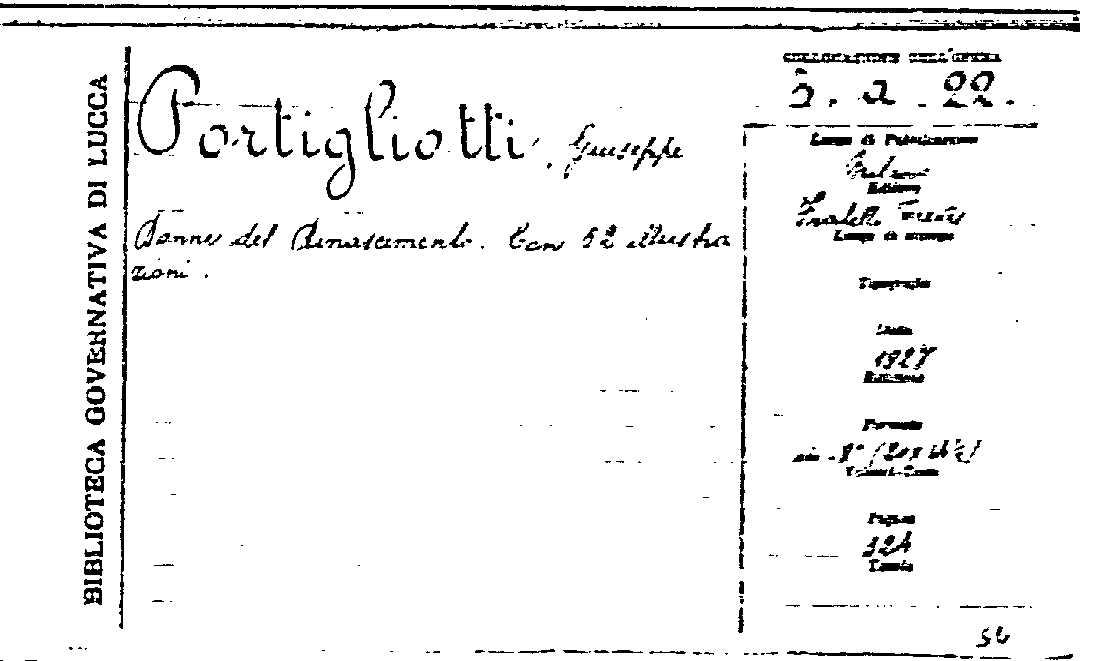 BIBLIOTECA GOVERNATIVA DI LUCCA
Portigliotti, Giuseppe
Donne del Rinascimento. Con 52 illustra
zioni.
COLLOCAZIONE DELL'OPERA
5. a. 22.
Luogo di Pubblicazione
Milano
Editore
Fratelli Treves
Luogo di stampa
Tipografia
Data
1927
Edizione
Formato
in-8° (
Pagine
324
Tavole
56